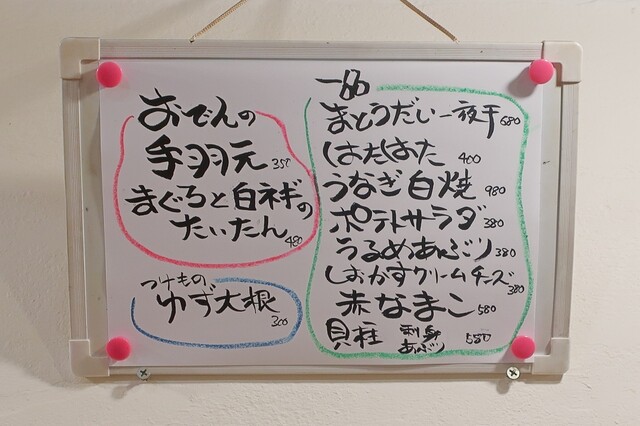 おでんの
手羽元 350
まぐろと白ネギの
たいたん 480
つけもの
ゆず大根 300
一品
まとうだい一夜干 680
はたはた 400
うなぎ白焼 980
ポテトサラダ 380
うるめあぶり 380
しおかすクリームチーズ 380
赤なまこ 580
貝柱 刺身 あぶり 550